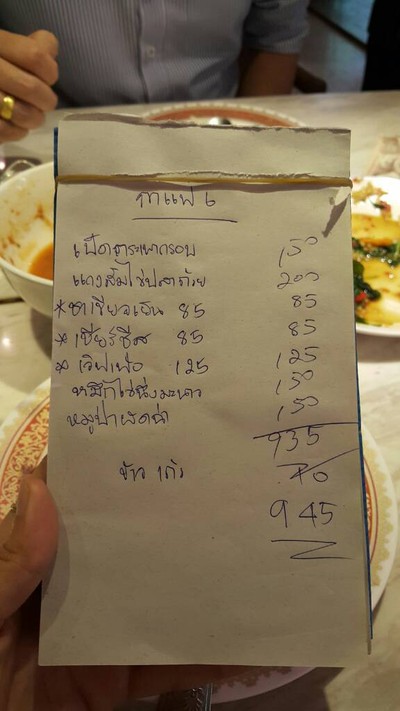 กาแฟ
เป็ดกระเพากรอบ 150
แกงส้มไข่ปลาถ้วย 200
*ชาเขียวเย็น 85 85
*เชียร์ชีส 85 85
* 125 125
หมึกไข่นึ่งมะนาว 150
หมูป่าผัดฉ่า 150
935
ข้าว
945